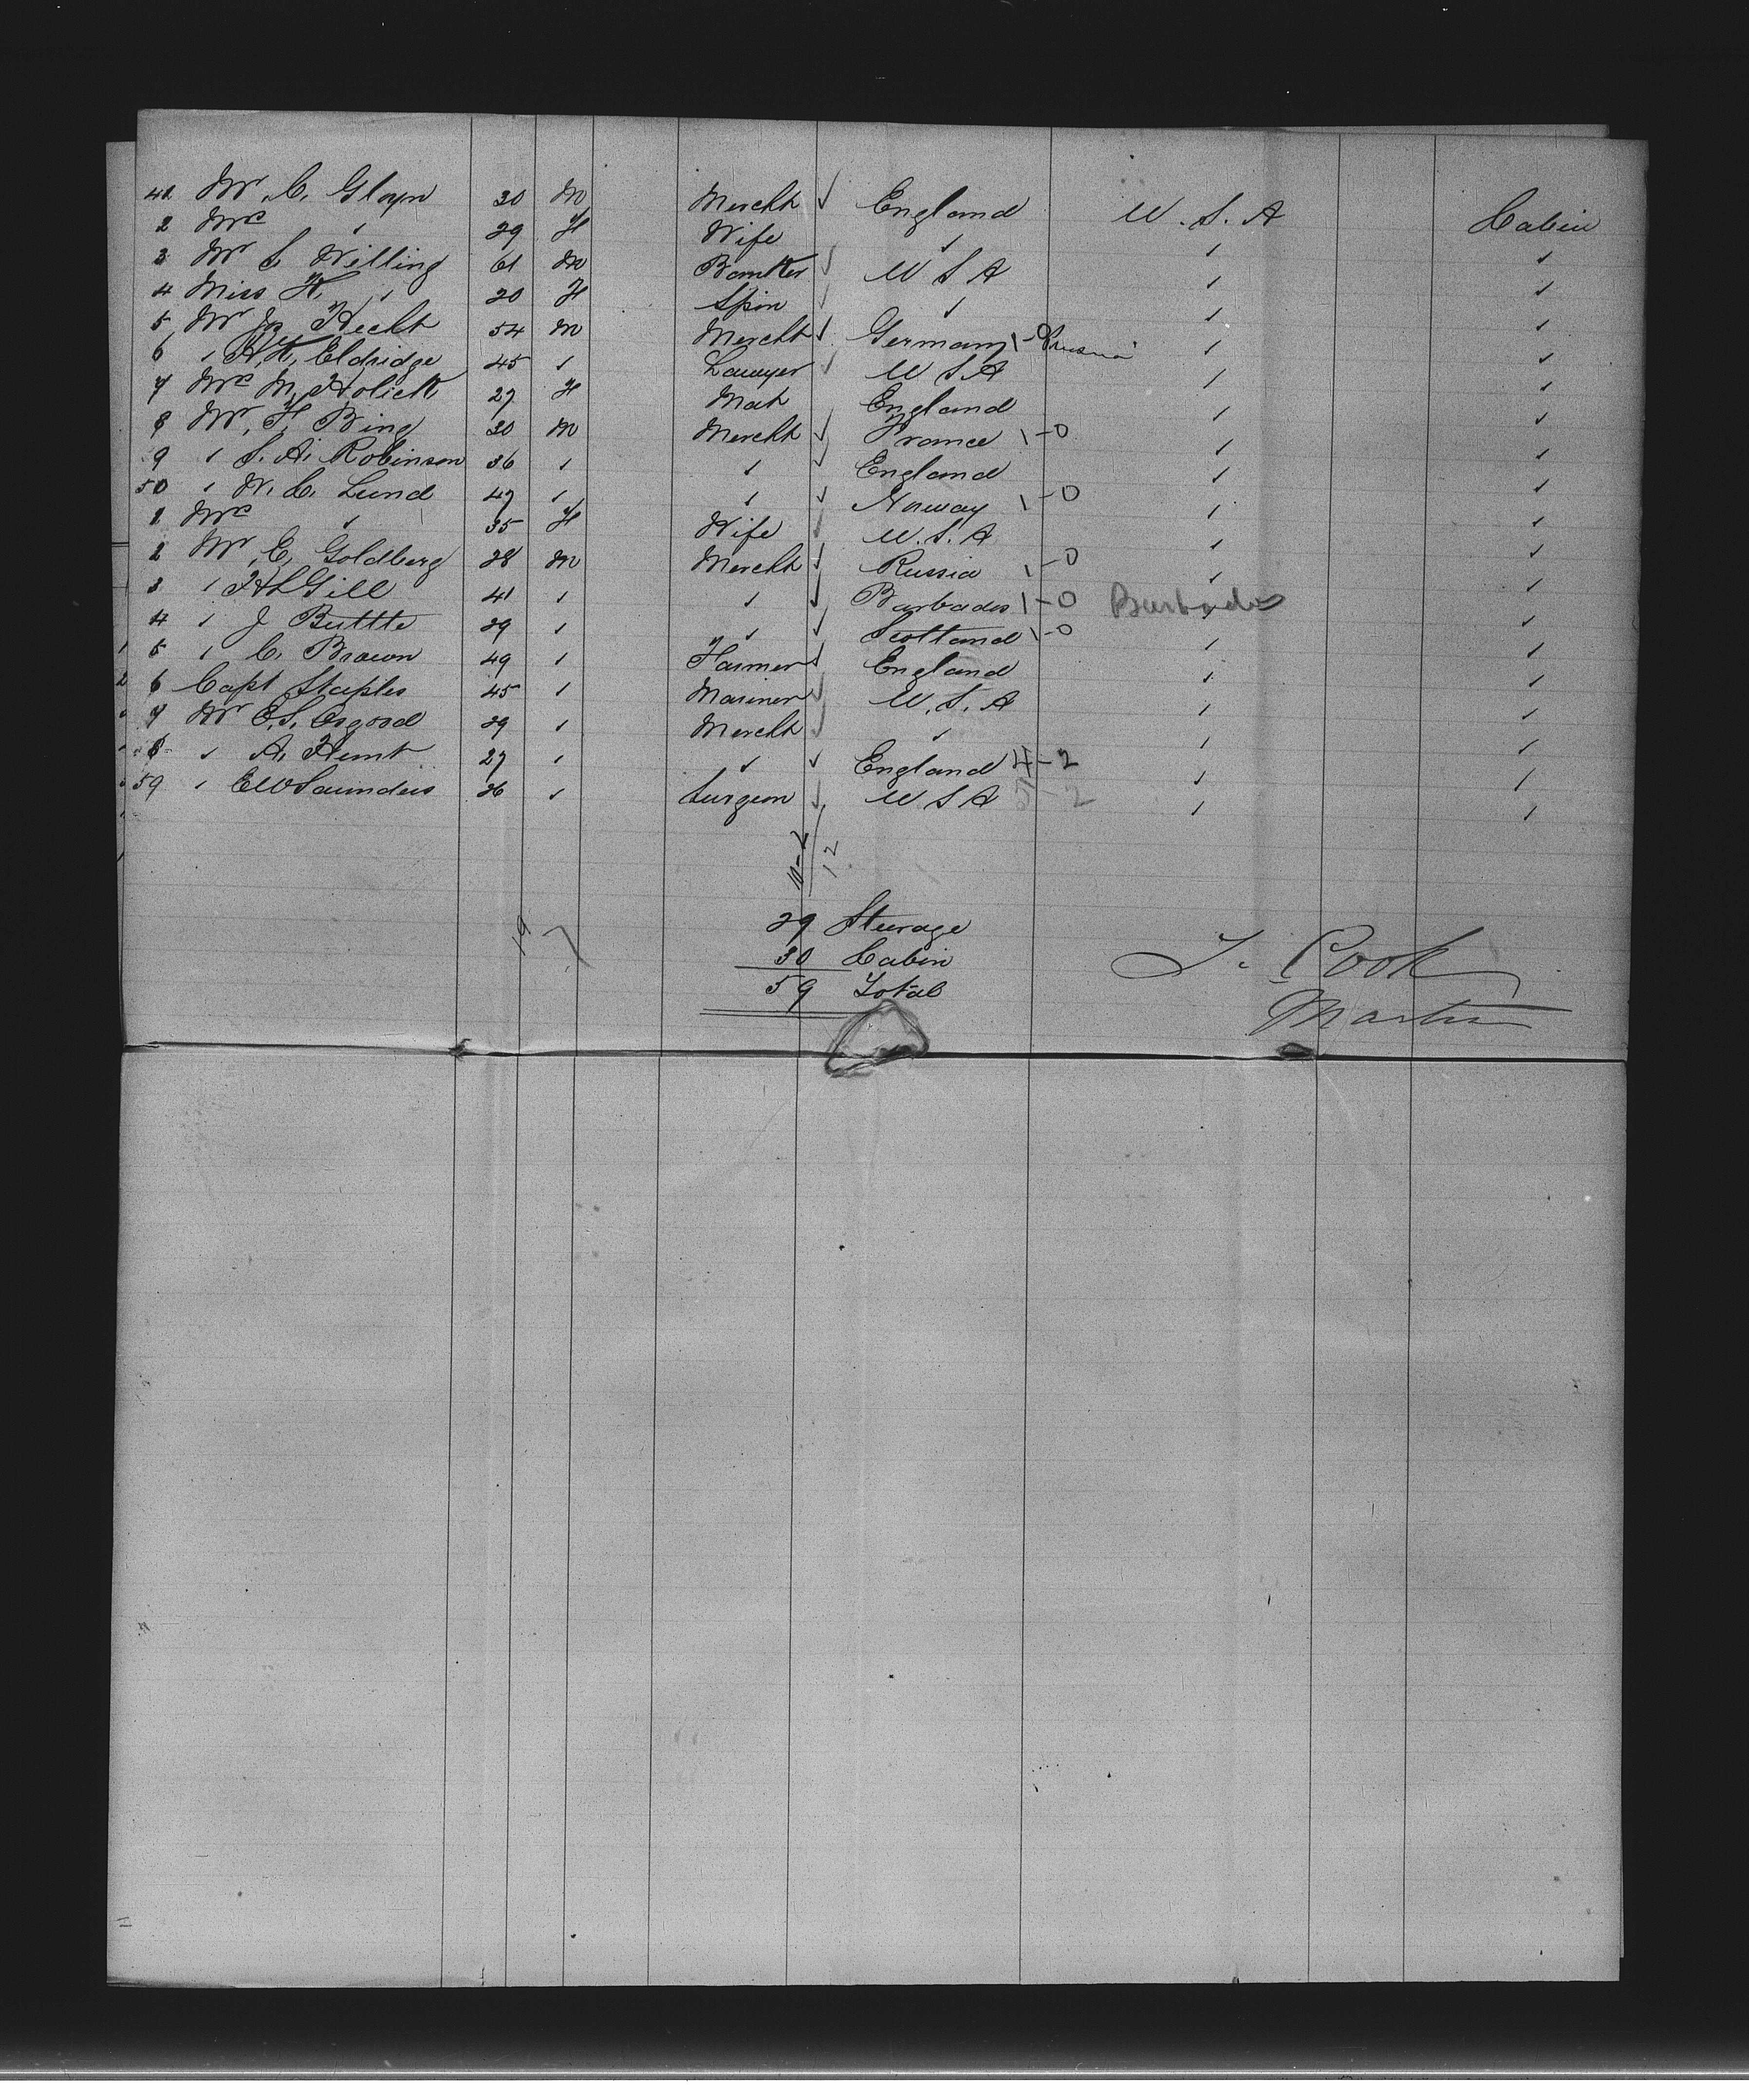 41 Mr. C. Gloyn 30 M Mercht ✓ England U.S.A Cabin
2 Mrs " 29 F Wife " " "
3 Mr S Willing 61 M Banker ✓ U S A " "
4 Miss H. " 20 F Spin ✓ " " "
5 Mr Hecht 54 M Mercht ✓ Germany 1- Prussia " "
6 " Eldridge 45 " Lawyer ✓ U S A " "
7 Mrs M. 27 F Mat England " "
8 Mr. F. Bing 30 M Mercht ✓ France 1-0 " "
9 " S. A. Robinson 36 " " ✓ England " "
50 " W. C. Lund 47 " " ✓ Norway 1-0 " "
1 Mrs " 35 F Wife ✓ U.S.A " "
2 Mr. E. Goldberg 28 M Mercht ✓ Russia 1-0 " "
3 " Gill 41 " " ✓ Barbados 1-0 Barbados "
4 " J 29 " " ✓ Scotland 1-0 " "
5 " C. Brown 49 " Farmer ✓ England " "
6 Capt Staples 45 " Mariner ✓ U.S.A " "
7 Mr E.S. Osgood 29 " Mercht ✓ " " "
8 " A. Hunt 27 " " ✓ England 4-2 " "
59 " E W Saunders 26 " Surgeon ✓ U S A 5-2 " "
10-2
12
19 7
29 Steerage
30 Cabin
59 Total
T. Cook
Master